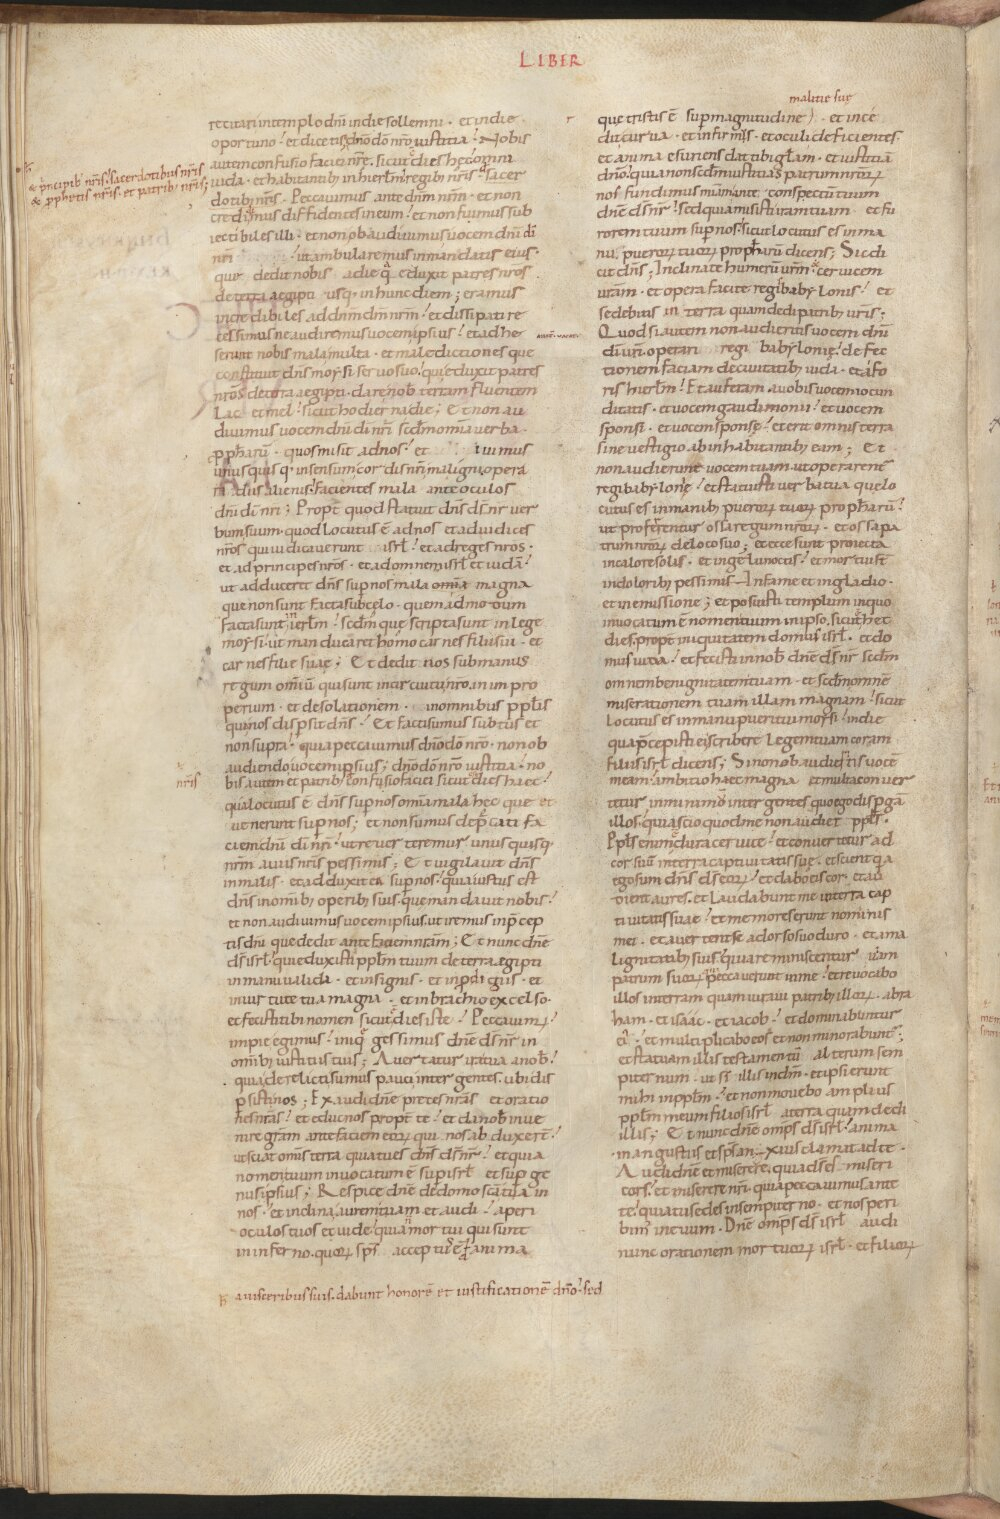 LIBER
recitari intemplo dñi indie sollemni · et indie
oportuno · et dicetis dño dõ nrõ iustitia · Nobis
autem confusio faciei nrē · sicut ÷ dies hec omni
iuda · et habitantib; inhierl̄m · regib; nrīs · sacer
& principib; nrīs · sacerdotibus nrīs
& pphetis nrīs · et patrib; nrīs ;
dotib; nrīs · Peccavimus ante dñm nrm̄ · et non
credidimus diffidentes ineum · et non fuimus sub
iectibiles illi · et non obaudivimus vocem dñi dī
nrī · ut ambularemus in mandatis eius ·
que dedit nobis adie q̄ eduxit patres nrōs
de terra aegipti usq; inhunc diem ; eramus
incredibiles ad dñm dm̄ nrm̄ · et dissipati re
cessimus ne audiremus vocem ipsius · et adhe
serunt nobis mala multa · et maledictiones que
constituit dñs moysi servo suo · qui eduxit patres
nrōs de terra aegipti · dare nob̄ terram fluentem
Lac · et mel · sicut hodierna die ; Et non au
divimus vocem dñi dī nrī scd̄m omnia verba
pph̄arū · quos misit ad nos · et ivimus
unusquisq; insensum cordis nrī maligni · opera
ri diis alienis · facientes mala ante oculos
dñi dī nrī ; Propt̄ quod statuit dñs d̄s nr̄ ver
bum suum · quod Locutus ē ad nos et ad iudices
nrōs qui iudicaverunt isrl̄ · et ad reges nrōs ·
et ad principes nrōs · et adomnem isrl̄ et iudā ·
ut adduceret dñs sup nos mala omīa magna
que non sunt facta sub celo · quemadmodum
facta sunt in ierl̄m · scd̄m que scripta sunt in lege
moysi · ut manducaret homo carnes filii sui · et
carnes filie suae ; Et dedit nos sub manus
regum omīū qui sunt in circuitu nrō · in inpro
perium · et desolationem · in omnibus ppl̄is
quinos dispsit dñs · Et facti sumus subtus et
non supra · quia peccavimus dño dõ nrō · non ob
audiendo voce ipsius ; dño dõ nrō iustitia · no
bis autem et patrib; confusio faciei sicut ÷ dies haec ·
nrīs
quia locutus ē dñs sup nos omīa mala hec que
venerunt sup nos ; et non sumus dep̄cati fa
ciem dñi dī nrī · ut reverteremur unusquisq;
nrm̄ aviis nrīs pessimis ; Et vigilavit dñs
in malis · et adduxit ea sup nos · quia iustus est
dñs in omib; operib; suis · que mandavit nobis ·
et non audivimus vocem ipsius · ut iremus inp̄cep
tis dñi que dedit ante faciem nrām ; Et nunc dñe
d̄s isrl̄ · qui eduxisti ppl̄m tuum de terra aegipti
in manu valida · et insignis · et inp̄digiis · et
invirtute tua magna · et in brachio excelso ·
et fecisti tibi nomen sicut ÷ dies iste · Peccavim; ·
impie egimus · iniq̄ gessimus dñe d̄s nr̄ in
omīb; iustitiis tuis ; Avertatur ira tua a nob̄ ·
quia derelicti sumus pauci inter gentes · ubi dis
psisti nos ; Exaudi dñe preces nrās et oratio
nes nrās · et educ nos propt̄ te · et da nob̄ inve
nire gr̄am ante faciem eoꝝ qui nos abduxert̄ ·
ut sciat omīs terra quia tu es dñs d̄s nr̄ · et quia
nomen tuum invocatum ē sup isrl̄ et sup ge
nus ipsius ; Respice dñe de domo scā tua in
nos · et inclina aurem tuam et audi · aperi
oculos tuos et vide · quia ñ mortui qui sunt
in inferno · quoꝝ sp̄s acceptus ē anima
avisceribus suis · dabunt honorē et iustificationē dño · sed
malitie suę
que tristis ē sup magnitudine · et incē
dit curva · et infirmis · et oculi deficientes
et anima esuriens dat tibi gl̄am · et iustitiā
dño · quia non scd̄m iustitias patrum nrōꝝ
nos fundimus miām ante conspectū tuum
dñe d̄s nr̄ · sed quia misisti iram tuam · et fu
rorem tuum sup nos · sicut locutus es in ma
nu pueroꝝ tuoꝝ proph̄arū dicens ; Sic di
cit dñs ; Inclinate humerū vrm̄ · et cervicem
vrām · et opera facite regi babylonis · et
sedebitis in terra quam dedi patrib; vrīs ;
Quod si autem non audieritis vocem dñi
dī vrī · operari regi babylonię · defec
tionem faciam decivitatib; iuda · et afo
ris hierl̄m · Et auferam avobis vocem iocun
ditatis · et vocem gaudimonii · et vocem
sponsi · et vocem sponse · et erit omnis terra
sine vestigio ab inhabitantib; eam ; Et
non audierunt̄ vocem tuam · ut operarent̄
regi babylonię · et statuisti verba tua que lo
cutus es in manib; pueroꝝ tuoꝝ proph̄arū ·
ut proferentur ossa regum nrōꝝ · et ossa pa
trum nrōꝝ de loco suo ; et ecce sunt proiecta
in calore solis · et ingelu noctis · et mortui st̄
in doloribus pessimis — In fame et in gladio ·
et in emissione ; et posuisti templum in quo
invocatum ē nomen tuum in ipso · sicut ÷ hec
dies · propt̄ iniquitatem domus isrl̄ · et do
mus iuda · et fecisti in nob̄ dñe d̄s nr̄ scd̄m
omnem benignitatem tuam · et scd̄m omnē
miserationem tuam illam magnam · sicut
locutus es in manu pueri tui moysi · in die
qua p̄cepisti ei scribere Legem tuam coram
filiis isrl̄ dicens ; Si non obaudiertis vocē
meam · ambitio haec magna et multa conver
tetur in minimā inter gentes · quo ego disp̄gā
illos · quia scio quod me non audiet ppl̄s ·
Ppl̄s enim ÷ dura cervice · et convertetur ad
cor suū in terra captivitatis suę · et scient q̄a
ego sum dñs d̄s eoꝝ · et dabo eis cor · et au
dient aures · et Laudabunt me in terra cap
tivitatis suae · et memores erunt nominis
mei · et avertent se adorso suo duro · et ama
lignitatib; suis · quia reminiscentur viam
patrum suoꝝ qui peccaverunt in me · et revocabo
illos in terram quam iuravi patrib; illoꝝ · abra
ham · et isaac · et iacob · et dominabuntur
ei · et multiplicabo eos et non minorabunt̄ ;
et statuam illis testamentū alterum sem
piternum · ut sī illis indm̄ · et ipsi erunt
mihi in ppl̄m · et non movebo amplius
ppl̄m meum filios isrl̄ aterra quam dedi
illis ; Et nunc dñe omp̄s d̄s isrl̄ · anima
in angustiis et sp̄s anxius clamat ad te ·
Audi dñe et miserere · quia d̄s es miseri
cors · et miserere nrī · quia peccavimus ante
te · quia tu sedes in sempiterno · et nos peri
bim; in evum · Dñe omp̄s d̄s isrl̄ audi
nunc orationem mortuoꝝ isrl̄ · et filioꝝ